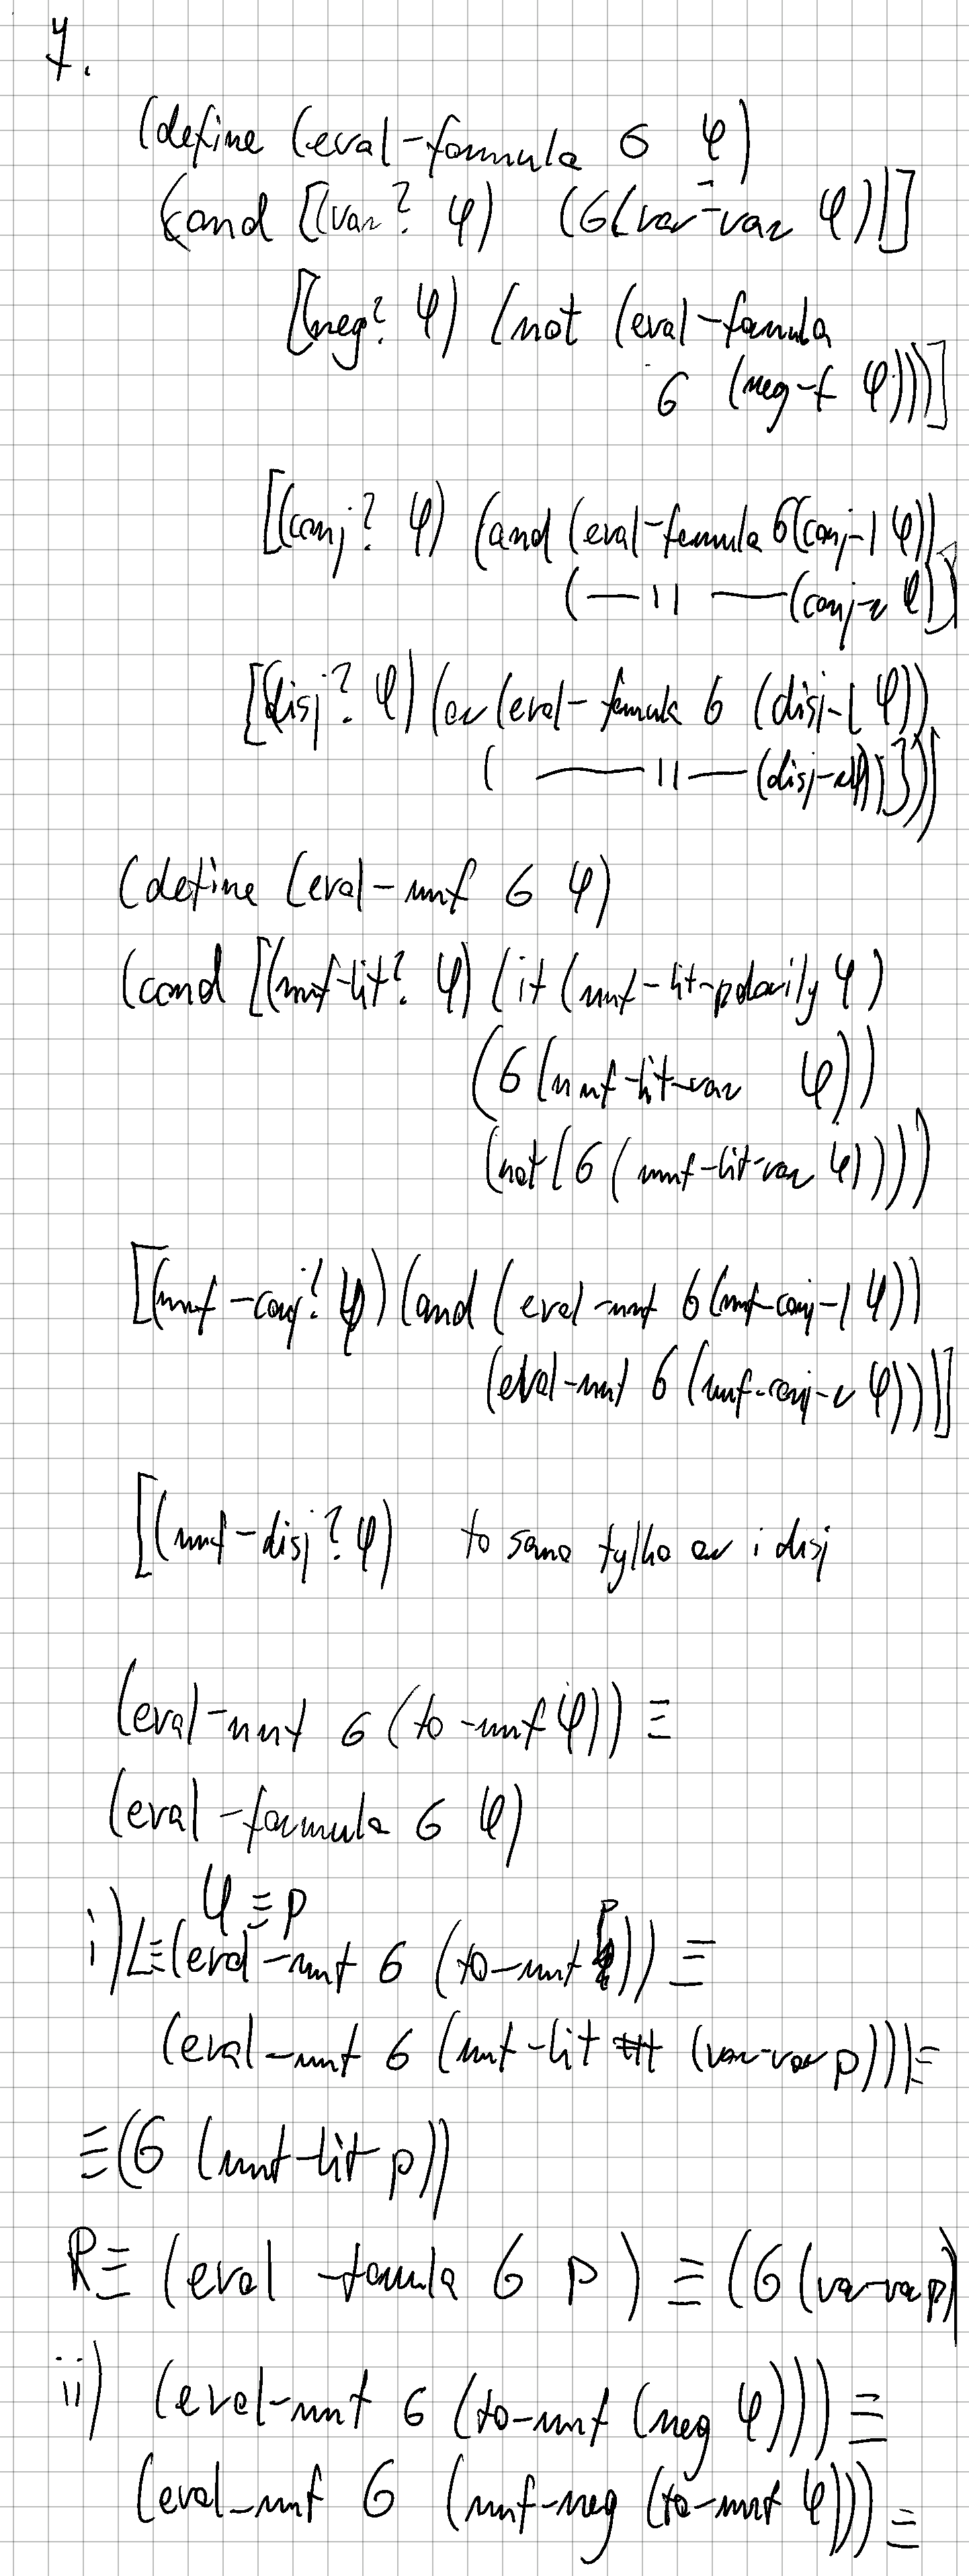 7.
(define (eval-formula σ φ)
(cond [(var? φ) (σ(var-var φ))]
[(neg? φ) (not (eval-fomula
σ (neg-f φ)))]
[(conj? φ) (and (eval-fomula σ(conj-l φ))
( —— || —— (conj-r φ))
[(disj? φ) (or (eval-fomula σ (disj-l φ))
( —— || —— (disj-rφ))]))
(define (eval-nnf σ φ)
(cond [(nnf-lit? φ) (if (nnf-lit-polarity φ)
(σ (nnf-lit-var φ))
(not (σ (nnf-lit-var φ))))
[(nnf-conj? φ) (and (eval-nnf σ (nnf-conj-l φ))
(eval-nnf σ (nnf-conj-r φ)))]
[(nnf-disj? φ) to samo tylko or i disj
(eval-nnf σ (to-nnf φ)) ≡
(eval-formula σ φ)
φ ≡ p
i) L≡(eval-nnf σ (to-nnf p)) ≡
(eval-nnf σ (nnf-lit #t (var-var p))) ≡
≡ (σ (nnf-lit p))
R≡ (eval-fomula σ p) ≡ (σ (var-var p)
ii) (eval-nnf σ (to-nnf (neg φ))) ≡
(eval-nnf σ (nnf-neg (to-nnf φ))) ≡